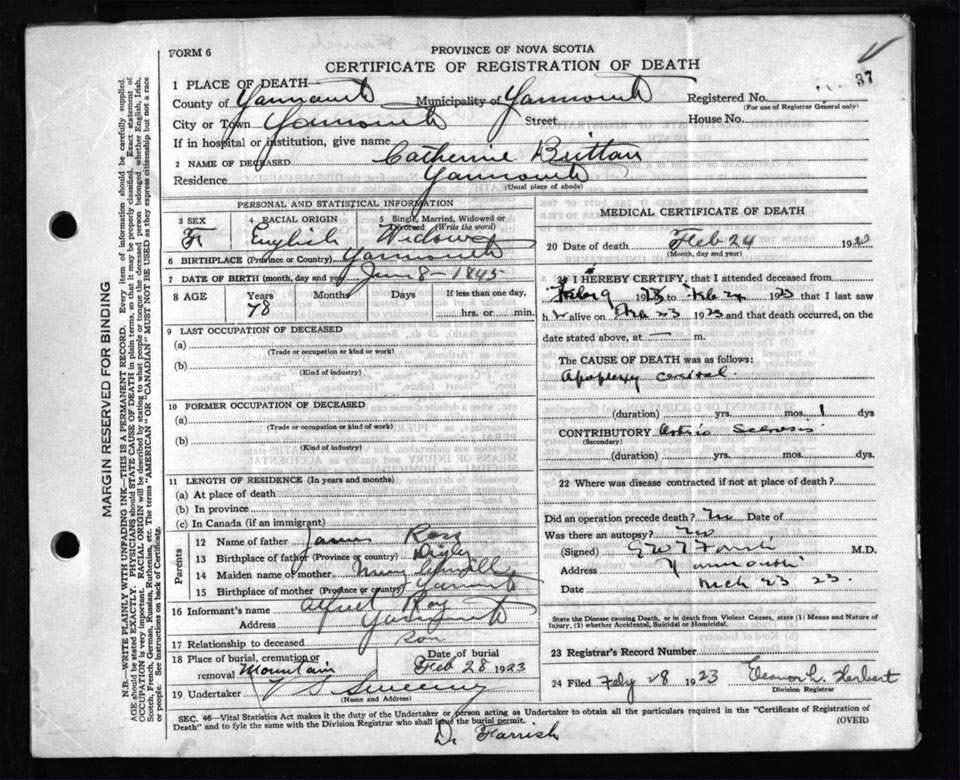 FORM 6
PROVINCE OF NOVA SCOTIA
CERTIFICATE OF REGISTRATION OF DEATH
37
1 PLACE OF DEATH
County of Yarmouth Municipality of Yarmouth Registered No.
(For use of Registrar General only)
City or Town Yarmouth Street House No.
If in hospital or institution, give name
2 NAME OF DECEASED Catherine Brittan
Residence Yarmouth
(Usual place of abode)
PERSONAL AND STATISTICAL INFORMATION
3 SEX 4 RACIAL ORIGIN 5 Single, Married, Widowed or Divorced (Write the word)
F English Widowed
6 BIRTHPLACE (Province or Country) Yarmouth
7 DATE OF BIRTH (month, day and year) 8 - 1845
8 AGE Years Months Days If less than one day,
78 hrs. or min.
9 LAST OCCUPATION OF DECEASED
(a)
(Trade or occupation or kind or work)
(b)
(Kind of industry)
10 FORMER OCCUPATION OF DECEASED
(a)
(Trade or occupation or kind of work)
(b)
(Kind of industry)
11 LENGTH OF RESIDENCE (In years and months)
(a) At place of death
(b) In province
(c) In Canada (if an immigrant)
Parents
12 Name of father James Ross
13 Birthplace of father (Province or country) Digby
14 Maiden name of mother Mary
15 Birthplace of mother (Province or country) Yarmouth
16 Informant's name Alfred Roy
Address Yarmouth
17 Relationship to deceased Son
18 Place of burial, cremation or removal Mountain Date of burial Feb 28 1923
19 Undertaker V S Sweeney
(Name and Address)
MEDICAL CERTIFICATE OF DEATH
20 Date of death Feb 24 1923
(Month, day and year)
21 I HEREBY CERTIFY, that I attended deceased from
Feb 9 1923 to Feb 24 1923 that I last saw
h alive on Feb 23 1923 and that death occurred, on the
date stated above, at — m.
The CAUSE OF DEATH was as follows:
Apoplexy central.
(duration) yrs. mos. 1 dys
CONTRIBUTORY Sclerosis
(Secondary)
(duration) yrs. mos. dys.
22 Where was disease contracted if not at place of death?
Did an operation precede death? No Date of
Was there an autopsy? No
(Signed) M.D.
Address Yarmouth
Date Mch 23 23.
State the Disease causing Death, or in death from Violent Causes, state (1) Means and Nature of Injury, (2) whether Accidental, Suicidal or Homicidal.
23 Registrar's Record Number
24 Filed Feby 28 1923 Eleanor L. Herbert
Division Registrar
SEC. 46—Vital Statistics Act makes it the duty of the Undertaker or person acting as Undertaker to obtain all the particulars required in the "Certificate of Registration of
Death" and to fyle the same with the Division Registrar who shall issue the burial permit. (OVER)
Dr Farrish
MARGIN RESERVED FOR BINDING
N.B.—WRITE PLAINLY WITH UNFADING INK—THIS IS A PERMANENT RECORD. Every item of information should be carefully supplied.
AGE should be stated EXACTLY. PHYSICIANS should STATE CAUSE OF DEATH in plain terms, so that it may be properly classified. Exact statement of
OCCUPATION is very important. RACIAL ORIGIN will be described by stating to what people or tongue the deceased person belonged whether English, Irish,
Scotch, French, German, Russian, Ruthenian, etc. The terms "AMERICAN" OR "CANADIAN" MUST NOT BE USED as they express citizenship but not a race
or people. See instructions on back of Certificate.